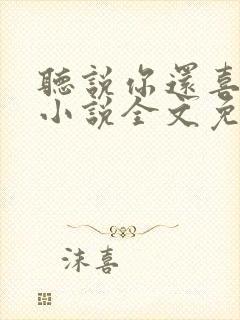 聽說你還喜
小說全文免
沫喜